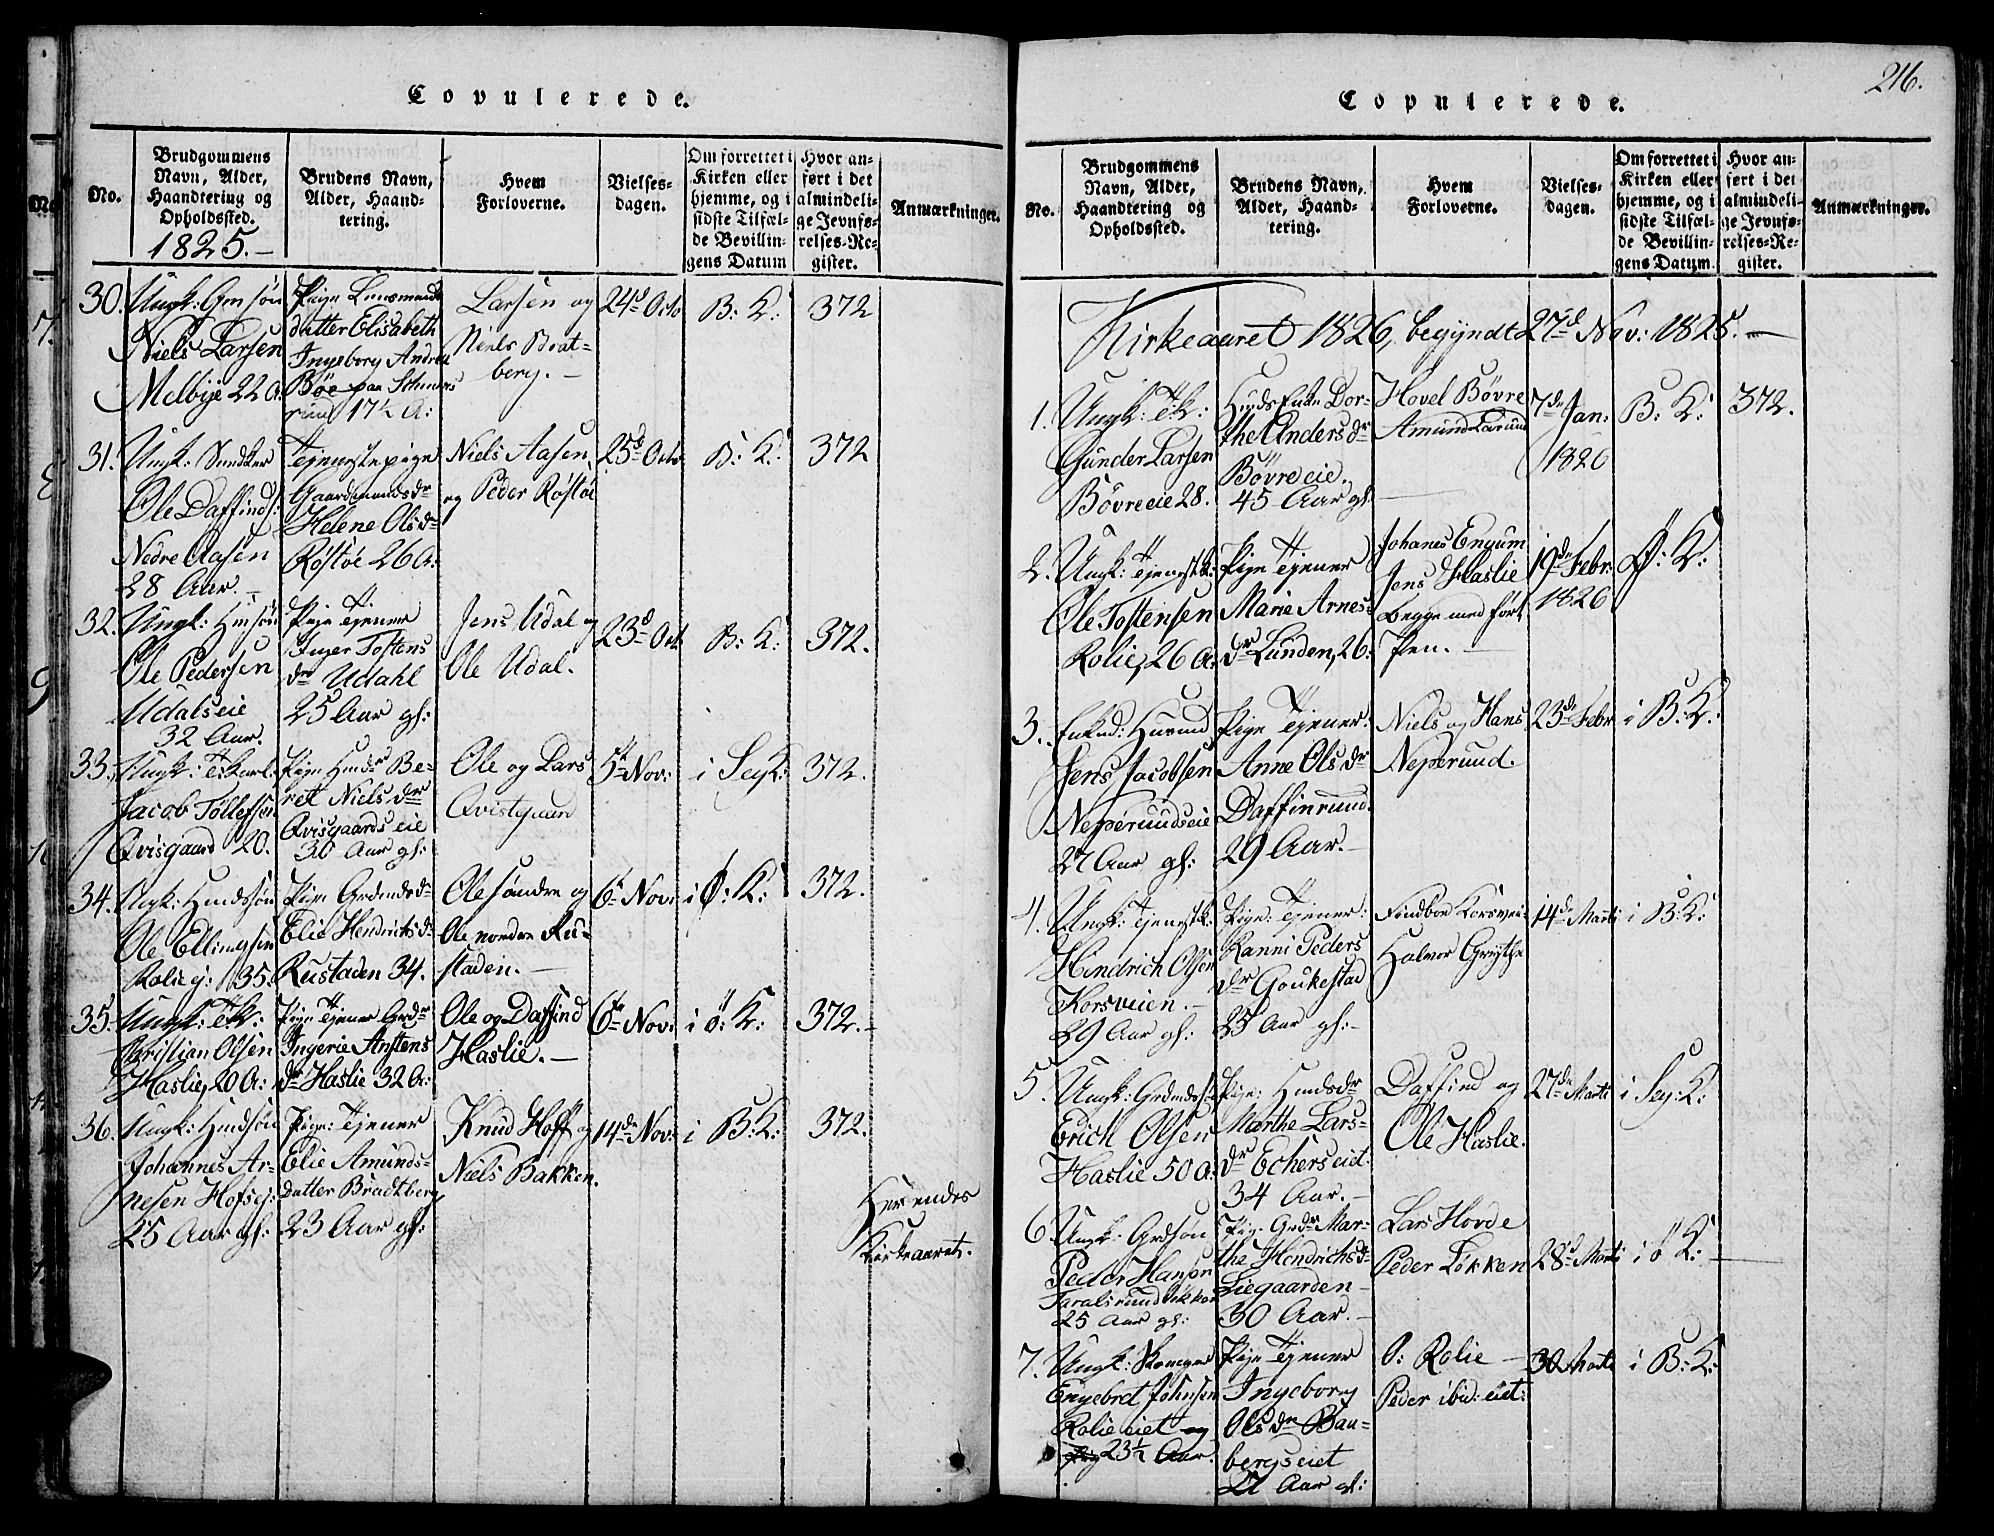 Copulerede.
No.
Brudgommens
Navn, Alder,
Haandtering og
Opholdssted.
1825.-
Brudens Navn,
Alder, Haand-
tering.
Hvem
Forloverne.
Vielses-
dagen.
Om forrettet i
Kirken eller
hjemme, og i
sidste Tilfæl-
de Bevillin-
gens Datum
Hvor an-
ført i det
almindeli-
ge Jevnfø-
relses-Re-
gister.
Anmærkninger.
30.
Ungk: Gmsøn
Niels Larsen
Melbye 22 A:
Pige
datter Elisabeth
Ingeborg Andrea
Bøe paa
rud 17½ A:
Larsen og
Niels Brat-
berg. -
24d Octo
B: K:
372
31.
Ungk:
Ole Daffinds:
Nedre Aasen
28 Aar. -
Tjenestepige
Gaardmandsdr
Helene Olsdr
Røstøe 26 A:
Niels Aasen
og Peder Røstøe
25d Octo
B: K:
372
32.
Ungk: Hmsøn
Ole Pedersen
Udalseie
32 Aar.
Pige Tjener
Inger Tostens
dr Udahl
25 Aar gl:
Jens Udal og
Ole Udal.
23d Oct
B: K:
372.
33.
Ungk: T: Karl:
Jacob Tollefsen
Qvisgaard 20.
Pige Hmds Be-
ret Niels dr
Qvisgaards eie
30 Aar gl:
Ole og Lars
Qvistgaard
5te Nov:
i Sey K:
372.
34.
Ungk: Hmdssøn
Ole Ellingsen
Rolie ej: 35.
Pige Grdmdsdr
Elie Hendrichsdr
Rustaden 34.
Ole søndre og
Ole nordre Ru-
staden. -
6te Nov:
i Ø: K:
372.
35.
Ungk: T.K:
Christian Olsen
Haslie, 20 A:
Pige Tjener Grdr
Ingerie Anstens
dr Haslie 32 A:
Ole og Daffind
Haslie. -
6te Nov:
i Ø: K:
372.-
36.
Ungk: Hmdsøn
Johannes Ar-
nesen Hofsej:
25 Aar gl:
Pige: Tjener
Elie Amunds-
datter Bradtberg
23 Aar gl:
Knud Hoff og
Niels Bakken.
14de Nov:
i B: K:
372.
Her endes
Kirkeaaret.
216.
Copulerede.
No.
Brudgommens
Navn, Alder,
Haandtering og
Opholdssted.
Brudens Navn,
Alder, Haand-
tering.
Hvem
Forloverne.
Vielses-
dagen.
Om forrettet i
Kirken eller
hjemme, og i
sidste Tilfæl-
de Bevillin-
gens Datum.
Hvor an-
ført i det
almindeli-
ge Jevnfø-
relses-Re-
gister.
Anmærkninger.
Kirkeaaret 1826, begyndt 27d Nov: 1825. -
1.
Ungk: T.K:
Gunder Larsen
Bøvre eie 28.
Hmds Enke Dor-
the Anders dr
Bøvre eie.
45 Aar gl.
Hovel Bøvre
Amund
7de Jan:
1826
B: K:
372.
2.
Ungk: Tjenestk:
Ole Tostensen
Rolie, 26 A:
Pige Tjener
Marie Arnes-
dr Lunden, 26:
Johanes Engum
Jens Haslie
begge
19de Febr:
1826
Ø: K:
3.
Enkmd: Husmd
Jens Jacobsen
Neperudseie
27 Aar gl:
Pige Tjener:
Anne Ols dr
Daffinrud.
29 Aar. -
Niels og Hans
Neperud.
23de Febr
i B: K:
4.
Ungk: Tjenestk:
Hendrich Olsen
Korsveien. -
29 Aar gl:
Pige: Tjener:
Ranni Peders
dr Goukestad
25 Aar gl: -
Findboe Korsvei:
Halvor Grytthe
14de Marti
i B: K:
5.
Ungk: Grdmds:
Erich Olsen
Haslie 50 A:
Pige: Hmdsdr
Marthe Lars-
dr Echerseiet.
34 Aar. -
Daffind og
Ole Haslie.
27de Marti
i Sey: K:
6.
Ungk: Grdsøn
Peder Hansen
Taralsrud
25 Aar gl:
Pige: Grdr Mar-
the Hendrichsdr
Liegaarden -
30 Aar. -
Lars Hovde
Peder Løkken
28d Marti
i Ø K:
7.
Ungk:
Engebret Johnsen
Rolie eiet
23½ Aar.
Pige Tjener
Ingeborg
Ols dr Bau-
bergseiet
27 Aar gl:
O: Rolie -
Peder ibid: eiet:
30 Marti
i B: K: